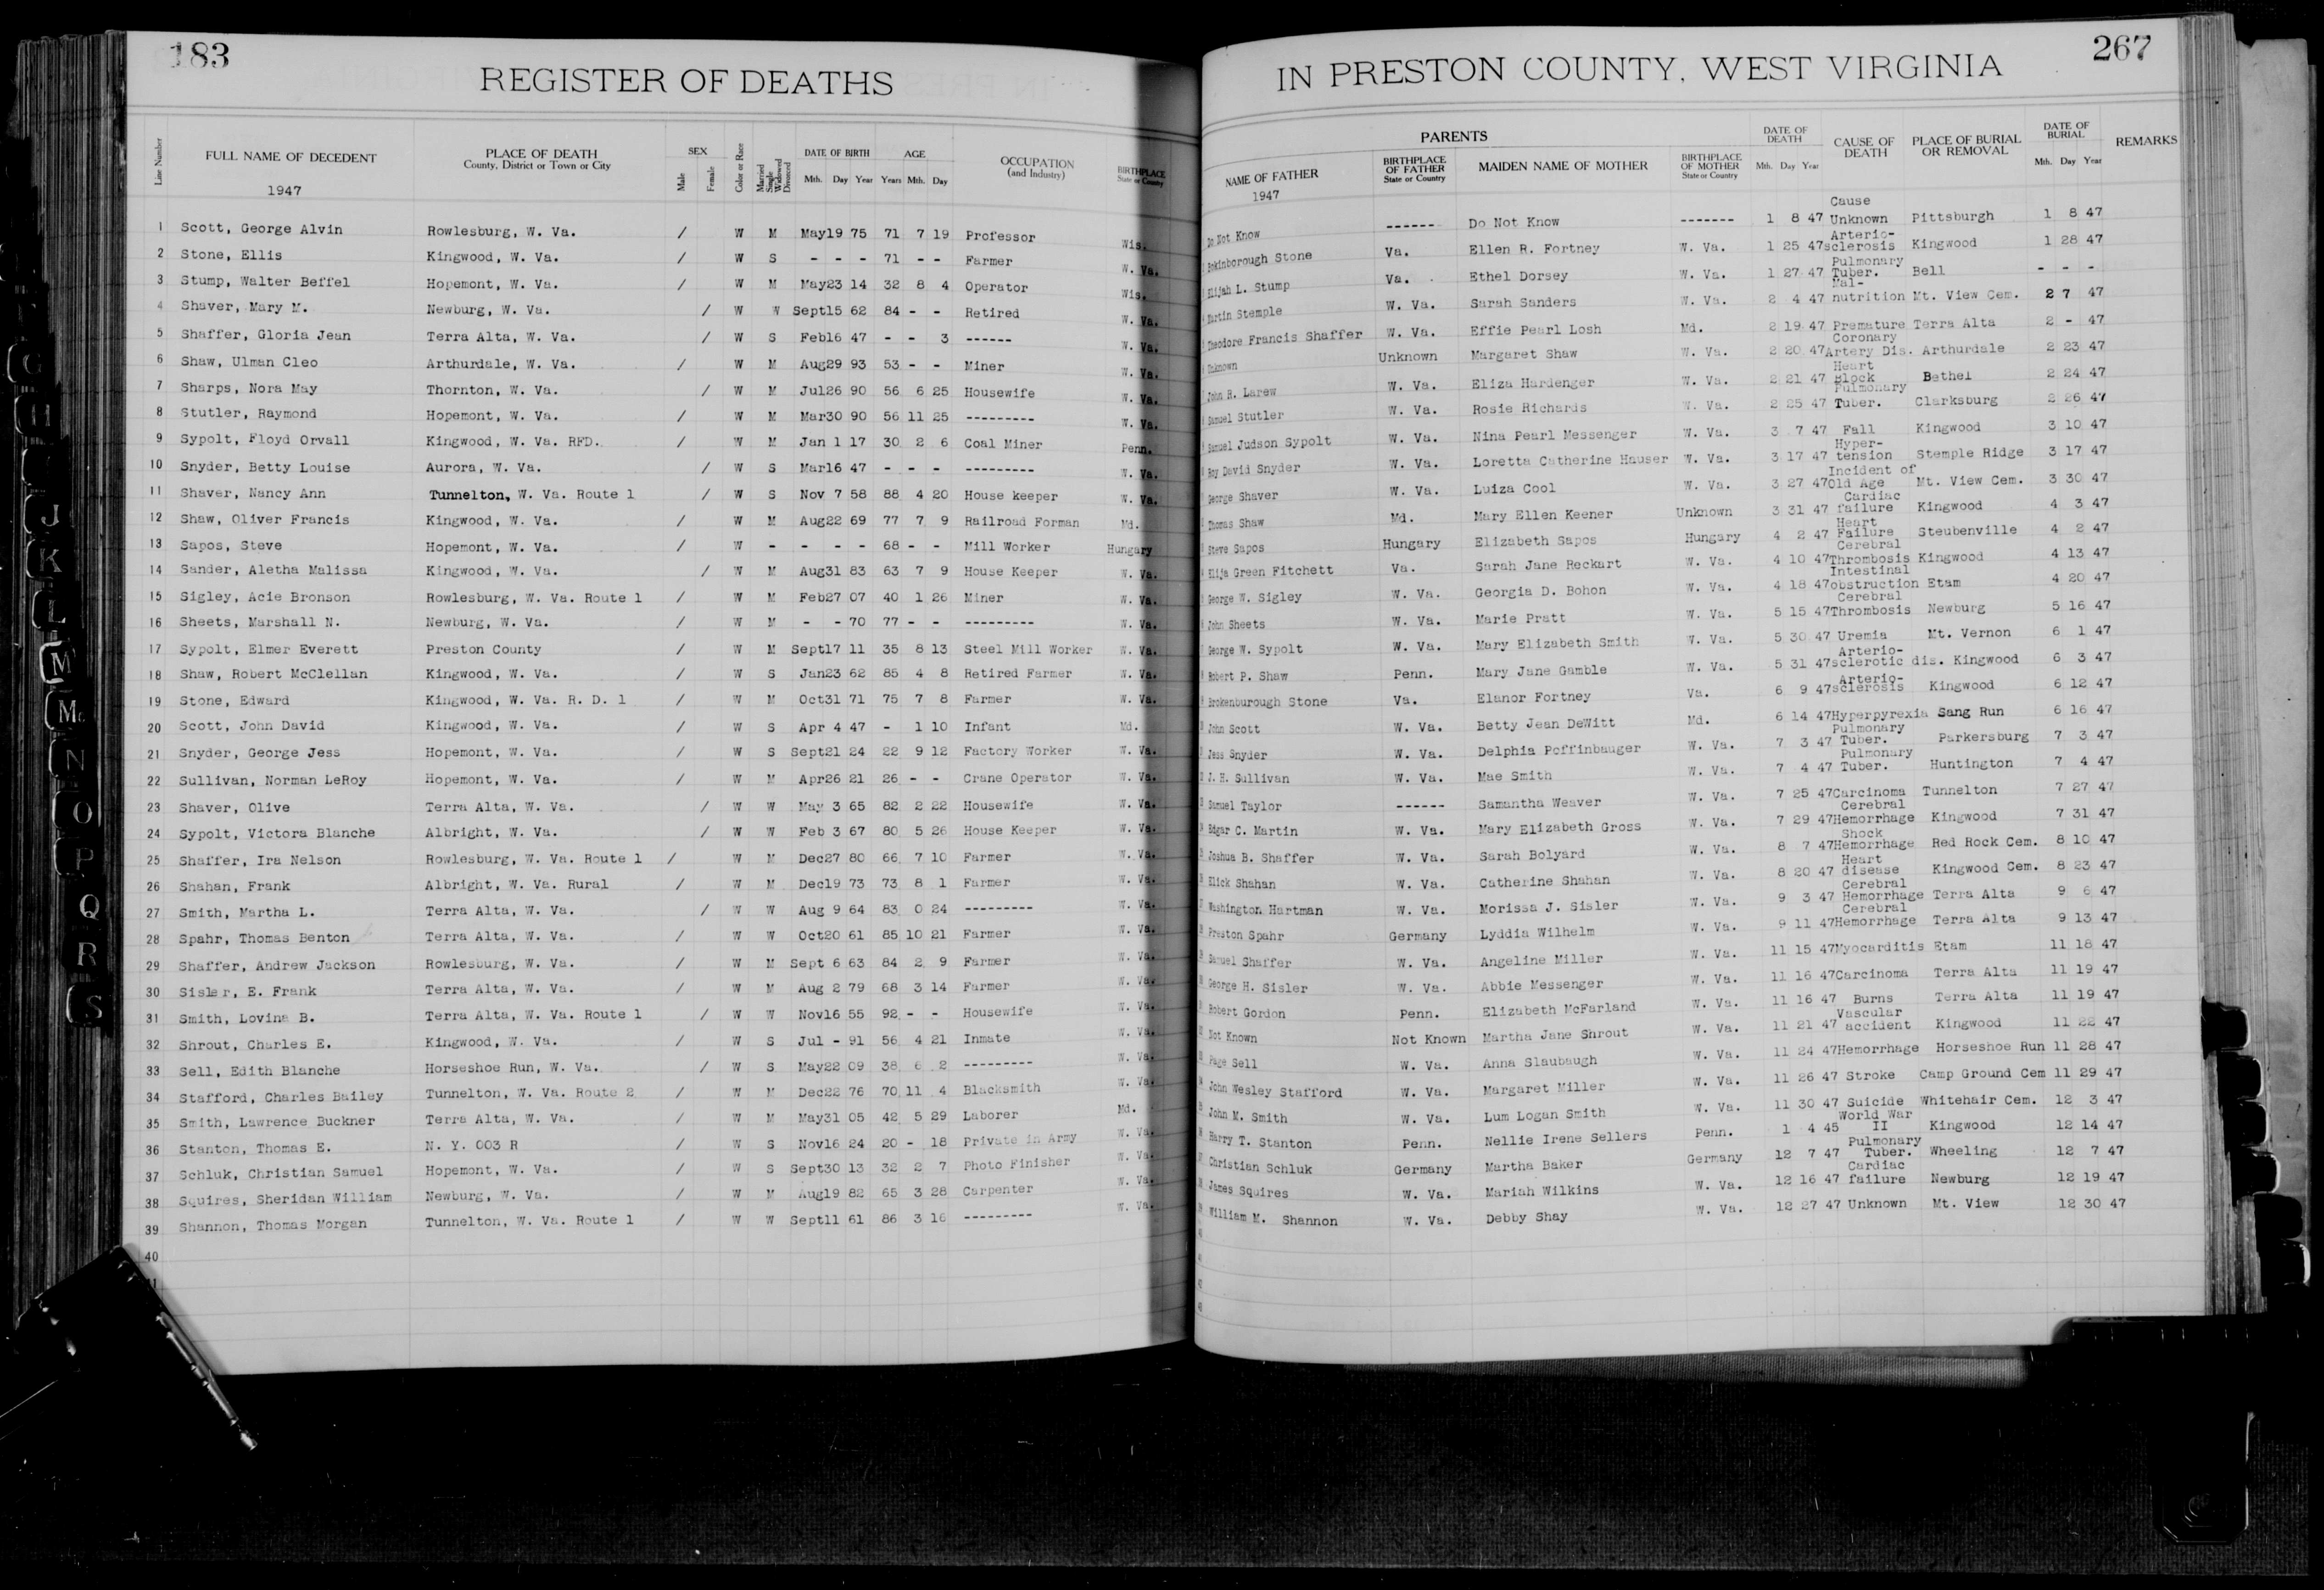 183
REGISTER OF DEATHS
Line Number
FULL NAME OF DECEDENT
1947
PLACE OF DEATH
County, District or Town or City
SEX
Male
Female
Color or Race
Married
Single
Widowed
Divorced
DATE OF BIRTH
Mth. Day Year
AGE
Years Mth. Day
OCCUPATION
(and Industry)
BIRTHPLACE
State or County
1 Scott, George Alvin Rowlesburg, W. Va. / W M May19 75 71 7 19 Professor Wis.
2 Stone, Ellis Kingwood, W. Va. / W S - - - 71 - - Farmer W. Va.
3 Stump, Walter Beffel Hopemont, W. Va. / W M May23 14 32 8 4 Operator Wis.
4 Shaver, Mary M. Newburg, W. Va. / W W Sept15 62 84 - - Retired W. Va.
5 Shaffer, Gloria Jean Terra Alta, W. Va. / W S Feb16 47 - - 3 ------ W. Va.
6 Shaw, Ulman Cleo Arthurdale, W. Va. / W M Aug29 93 53 - - Miner W. Va.
7 Sharps, Nora May Thornton, W. Va. / W M Jul26 90 56 6 25 Housewife W. Va.
8 Stutler, Raymond Hopemont, W. Va. / W M Mar30 90 56 11 25 --------- W. Va.
9 Sypolt, Floyd Orvall Kingwood, W. Va. RFD. / W M Jan 1 17 30 2 6 Coal Miner Penn.
10 Snyder, Betty Louise Aurora, W. Va. / W S Mar16 47 - - - --------- W. Va.
11 Shaver, Nancy Ann Tunnelton, W. Va. Route 1 / W S Nov 7 58 88 4 20 House keeper W. Va.
12 Shaw, Oliver Francis Kingwood, W. Va. / W M Aug22 69 77 7 9 Railroad Forman Md.
13 Sapos, Steve Hopemont, W. Va. / W - - - - 68 - - Mill Worker Hungary
14 Sander, Aletha Malissa Kingwood, W. Va. / W M Aug31 83 63 7 9 House Keeper W. Va.
15 Sigley, Acie Bronson Rowlesburg, W. Va. Route 1 / W M Feb27 07 40 1 26 Miner W. Va.
16 Sheets, Marshall N. Newburg, W. Va. / W M - - 70 77 - - --------- W. Va.
17 Sypolt, Elmer Everett Preston County / W M Sept17 11 35 8 13 Steel Mill Worker W. Va.
18 Shaw, Robert McClellan Kingwood, W. Va. / W S Jan23 62 85 4 8 Retired Farmer W. Va.
19 Stone, Edward Kingwood, W. Va. R. D. 1 / W M Oct31 71 75 7 8 Farmer W. Va.
20 Scott, John David Kingwood, W. Va. / W S Apr 4 47 - 1 10 Infant Md.
21 Snyder, George Jess Hopemont, W. Va. / W S Sept21 24 22 9 12 Factory Worker W. Va.
22 Sullivan, Norman LeRoy Hopemont, W. Va. / W M Apr26 21 26 - - Crane Operator W. Va.
23 Shaver, Olive Terra Alta, W. Va. / W W May 3 65 82 2 22 Housewife W. Va.
24 Sypolt, Victora Blanche Albright, W. Va. / W W Feb 3 67 80 5 26 House Keeper W. Va.
25 Shaffer, Ira Nelson Rowlesburg, W. Va. Route 1 / W M Dec27 80 66 7 10 Farmer W. Va.
26 Shahan, Frank Albright, W. Va. Rural / W M Dec19 73 73 8 1 Farmer W. Va.
27 Smith, Martha L. Terra Alta, W. Va. / W W Aug 9 64 83 0 24 --------- W. Va.
28 Spahr, Thomas Benton Terra Alta, W. Va. / W W Oct20 61 85 10 21 Farmer W. Va.
29 Shaffer, Andrew Jackson Rowlesburg, W. Va. / W M Sept 6 63 84 2 9 Farmer W. Va.
30 Sisler, E. Frank Terra Alta, W. Va. / W M Aug 2 79 68 3 14 Farmer W. Va.
31 Smith, Lovina B. Terra Alta, W. Va. Route 1 / W W Nov16 55 92 - - Housewife W. Va.
32 Shrout, Charles E. Kingwood, W. Va. / W S Jul - 91 56 4 21 Inmate W. Va.
33 Sell, Edith Blanche Horseshoe Run, W. Va. / W S May22 09 38 6 2 --------- W. Va.
34 Stafford, Charles Bailey Tunnelton, W. Va. Route 2 / W M Dec22 76 70 11 4 Blacksmith W. Va.
35 Smith, Lawrence Buckner Terra Alta, W. Va. / W M May31 05 42 5 29 Laborer Md.
36 Stanton, Thomas E. N. Y. 003 R / W S Nov16 24 20 - 18 Private in Army W. Va.
37 Schluk, Christian Samuel Hopemont, W. Va. / W S Sept30 13 32 2 7 Photo Finisher W. Va.
38 Squires, Sheridan William Newburg, W. Va. / W M Aug19 82 65 3 28 Carpenter W. Va.
39 Shannon, Thomas Morgan Tunnelton, W. Va. Route 1 / W W Sept11 61 86 3 16 --------- W. Va.
40
267
IN PRESTON COUNTY, WEST VIRGINIA
PARENTS
NAME OF FATHER
1947
BIRTHPLACE
OF FATHER
State or Country
MAIDEN NAME OF MOTHER
BIRTHPLACE
OF MOTHER
State or Country
DATE OF
DEATH
Mth. Day Year
CAUSE OF
DEATH
PLACE OF BURIAL
OR REMOVAL
DATE OF
BURIAL
Mth. Day Year
REMARKS
Do Not Know ------ Do Not Know ------- 1 8 47 Cause Unknown Pittsburgh 1 8 47
Stone Va. Ellen R. Fortney W. Va. 1 25 47 Arterio-sclerosis Kingwood 1 28 47
Elijah L. Stump Va. Ethel Dorsey W. Va. 1 27 47 Pulmonary Tuber. Bell - - -
Martin Stemple W. Va. Sarah Sanders W. Va. 2 4 47 Mal-nutrition Mt. View Cem. 2 7 47
Theodore Francis Shaffer W. Va. Effie Pearl Losh Md. 2 19 47 Premature Terra Alta 2 - 47
Unknown Unknown Margaret Shaw W. Va. 2 20 47 Coronary Artery Dis. Arthurdale 2 23 47
John R. Larew W. Va. Eliza Hardenger W. Va. 2 21 47 Heart Block Bethel 2 24 47
Samuel Stutler W. Va. Rosie Richards W. Va. 2 25 47 Pulmonary Tuber. Clarksburg 2 26 47
Samuel Judson Sypolt W. Va. Nina Pearl Messenger W. Va. 3 7 47 Fall Kingwood 3 10 47
Roy David Snyder W. Va. Loretta Catherine Hauser W. Va. 3 17 47 Hyper-tension Stemple Ridge 3 17 47
George Shaver W. Va. Luiza Cool W. Va. 3 27 47 Incident of Old Age Mt. View Cem. 3 30 47
Thomas Shaw Md. Mary Ellen Keener Unknown 3 31 47 Cardiac failure Kingwood 4 3 47
Steve Sapos Hungary Elizabeth Sapos Hungary 4 2 47 Heart Failure Steubenville 4 2 47
Elija Green Fitchett Va. Sarah Jane Reckart W. Va. 4 10 47 Cerebral Thrombosis Kingwood 4 13 47
George W. Sigley W. Va. Georgia D. Bohon W. Va. 4 18 47 Intestinal obstruction Etam 4 20 47
John Sheets W. Va. Marie Pratt W. Va. 5 15 47 Cerebral Thrombosis Newburg 5 16 47
George W. Sypolt W. Va. Mary Elizabeth Smith W. Va. 5 30 47 Uremia Mt. Vernon 6 1 47
Robert P. Shaw Penn. Mary Jane Gamble W. Va. 5 31 47 Arterio-sclerotic dis. Kingwood 6 3 47
Brokenburough Stone Va. Elanor Fortney Va. 6 9 47 Arterio-sclerosis Kingwood 6 12 47
John Scott W. Va. Betty Jean DeWitt Md. 6 14 47 Hyperpyrexia Sang Run 6 16 47
Jess Snyder W. Va. Delphia Poffinbauger W. Va. 7 3 47 Pulmonary Tuber. Parkersburg 7 3 47
J. H. Sullivan W. Va. Mae Smith W. Va. 7 4 47 Pulmonary Tuber. Huntington 7 4 47
Samuel Taylor ------ Samantha Weaver W. Va. 7 25 47 Carcinoma Tunnelton 7 27 47
Edgar C. Martin W. Va. Mary Elizabeth Gross W. Va. 7 29 47 Cerebral Hemorrhage Kingwood 7 31 47
Joshua B. Shaffer W. Va. Sarah Bolyard W. Va. 8 7 47 Shock Hemorrhage Red Rock Cem. 8 10 47
Elick Shahan W. Va. Catherine Shahan W. Va. 8 20 47 Heart disease Kingwood Cem. 8 23 47
Washington Hartman W. Va. Morissa J. Sisler W. Va. 9 3 47 Cerebral Hemorrhage Terra Alta 9 6 47
Preston Spahr Germany Lyddia Wilhelm W. Va. 9 11 47 Cerebral Hemorrhage Terra Alta 9 13 47
Samuel Shaffer W. Va. Angeline Miller W. Va. 11 15 47 Myocarditis Etam 11 18 47
George H. Sisler W. Va. Abbie Messenger W. Va. 11 16 47 Carcinoma Terra Alta 11 19 47
Robert Gordon Penn. Elizabeth McFarland W. Va. 11 16 47 Burns Terra Alta 11 19 47
Not Known Not Known Martha Jane Shrout W. Va. 11 21 47 Vascular accident Kingwood 11 22 47
Page Sell W. Va. Anna Slaubaugh W. Va. 11 24 47 Hemorrhage Horseshoe Run 11 28 47
John Wesley Stafford W. Va. Margaret Miller W. Va. 11 26 47 Stroke Camp Ground Cem 11 29 47
John M. Smith W. Va. Lum Logan Smith W. Va. 11 30 47 Suicide Whitehair Cem. 12 3 47
Harry T. Stanton Penn. Nellie Irene Sellers Penn. 1 4 45 World War II Kingwood 12 14 47
Christian Schluk Germany Martha Baker Germany 12 7 47 Pulmonary Tuber. Wheeling 12 7 47
James Squires W. Va. Mariah Wilkins W. Va. 12 16 47 Cardiac failure Newburg 12 19 47
William M. Shannon W. Va. Debby Shay W. Va. 12 27 47 Unknown Mt. View 12 30 47
G
H
J
K
L
M
Mc
N
O
P
Q
R
S